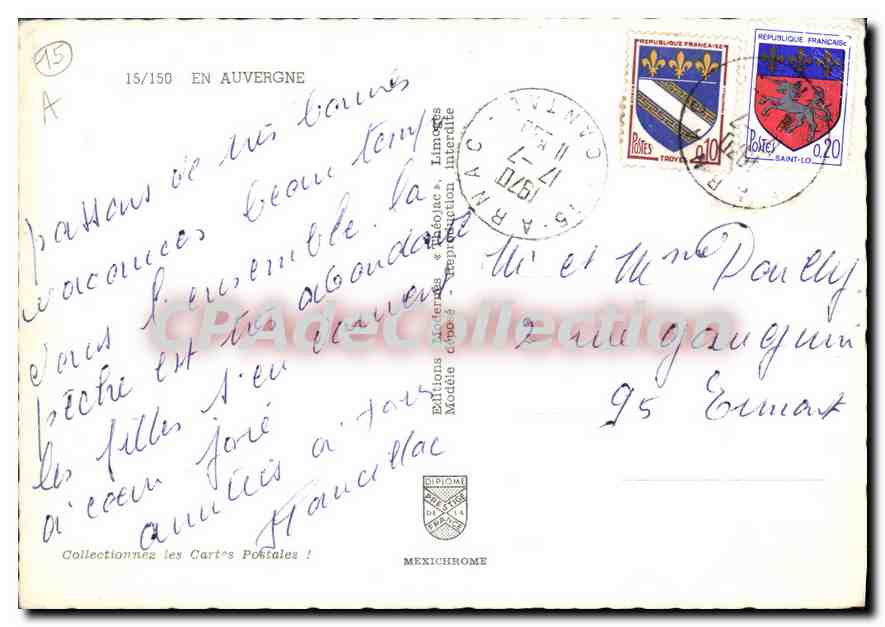 15
A
15/150 EN AUVERGNE
passons de très bonnes
vacances beau temps
dans l'ensemble. la
pêche est très abondante
les filles s'en donnent
à coeur joie
amitiés à tous
Collectionnez les Cartes Postales !
Editions Modernes « Théojac », Limoges
Modèle déposé - Reproduction interdite
DIPLOME
PRESTIGE
DE LA
FRANCE
MEXICHROME
15 - ARNAC - CANTAL
11 H
17 -7
1970
REPUBLIQUE FRANCAISE
POSTES 0,10
TROYES
REPUBLIQUE FRANCAISE
POSTES 0,20
SAINT-LO
Mr et Mme
2 rue gauguin
95 Ermont
CPAdeCollection